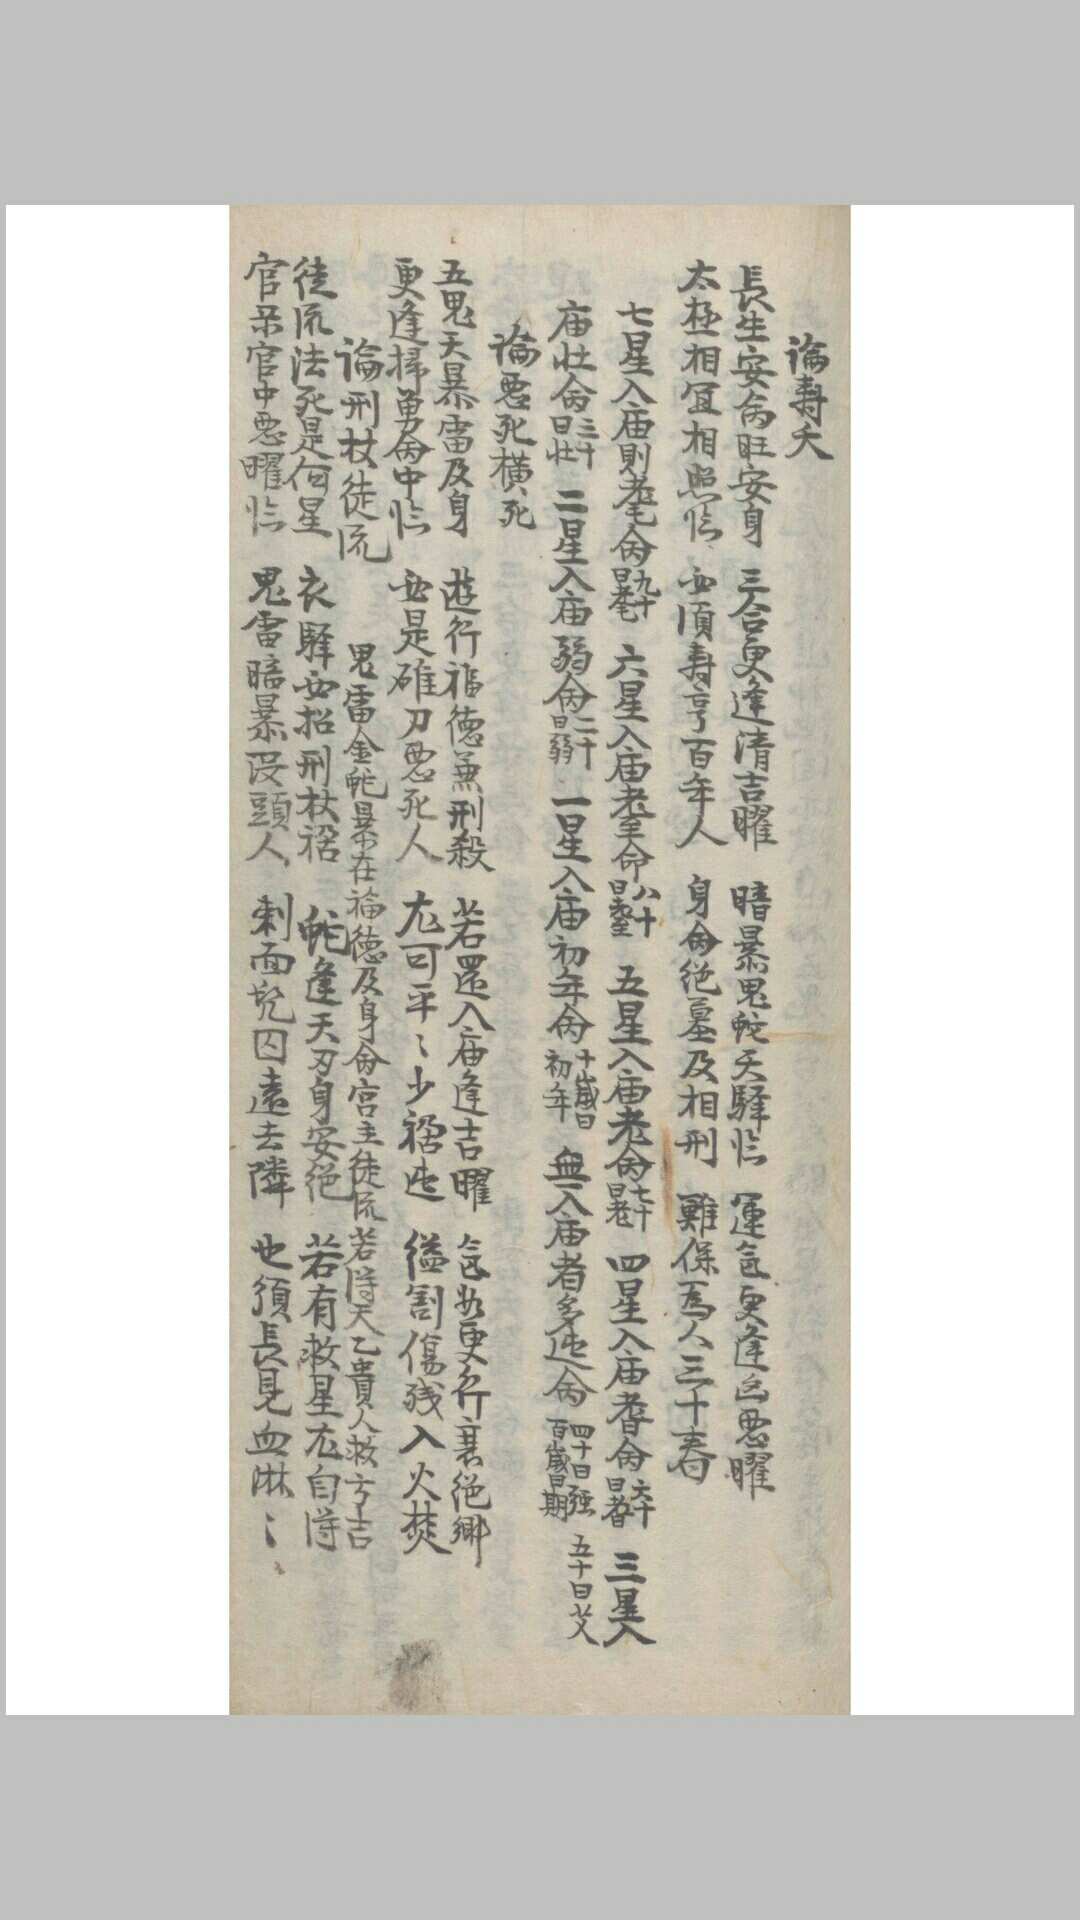 論壽夭
長生安命旺安身 三合更逢清吉曜 暗暴鬼蛇天驛临 運包更逢凶惡曜
太極相宜相照临 必須壽享百年人 身命絕墓及相刑 難保為人三十春
七星入庙則耄命九十曰耄 六星入庙耋命八十曰耋 五星入庙老命七十曰老 四星入庙耆命六十曰耆 三星入
庙壯命三十曰壯 二星入庙弱命二十曰弱 一星入庙初年命十歲曰初年 無一入庙者多迍命 四十曰强 五十曰艾 百歲曰期
論惡死橫死
五鬼天暴雷及身 遊行福德兼刑殺 若還入庙逢吉曜 包必更行衰絕鄉
更逢掃勇命中临 必是碓刀惡死人 尤可平〻少禍迍 縊割傷残入火焚
論刑杖徒流 鬼雷金蛇暴在福德及身命宮主徒流若得天乙貴人救方吉
徒流法死是何星 衣驛必招刑杖禍 蛇逢天刃身安绝 若有救星尤自得
官杀官中惡曜临 鬼雷暗暴没頭人 刺面兇囚遠去隣 也須長見血淋〻